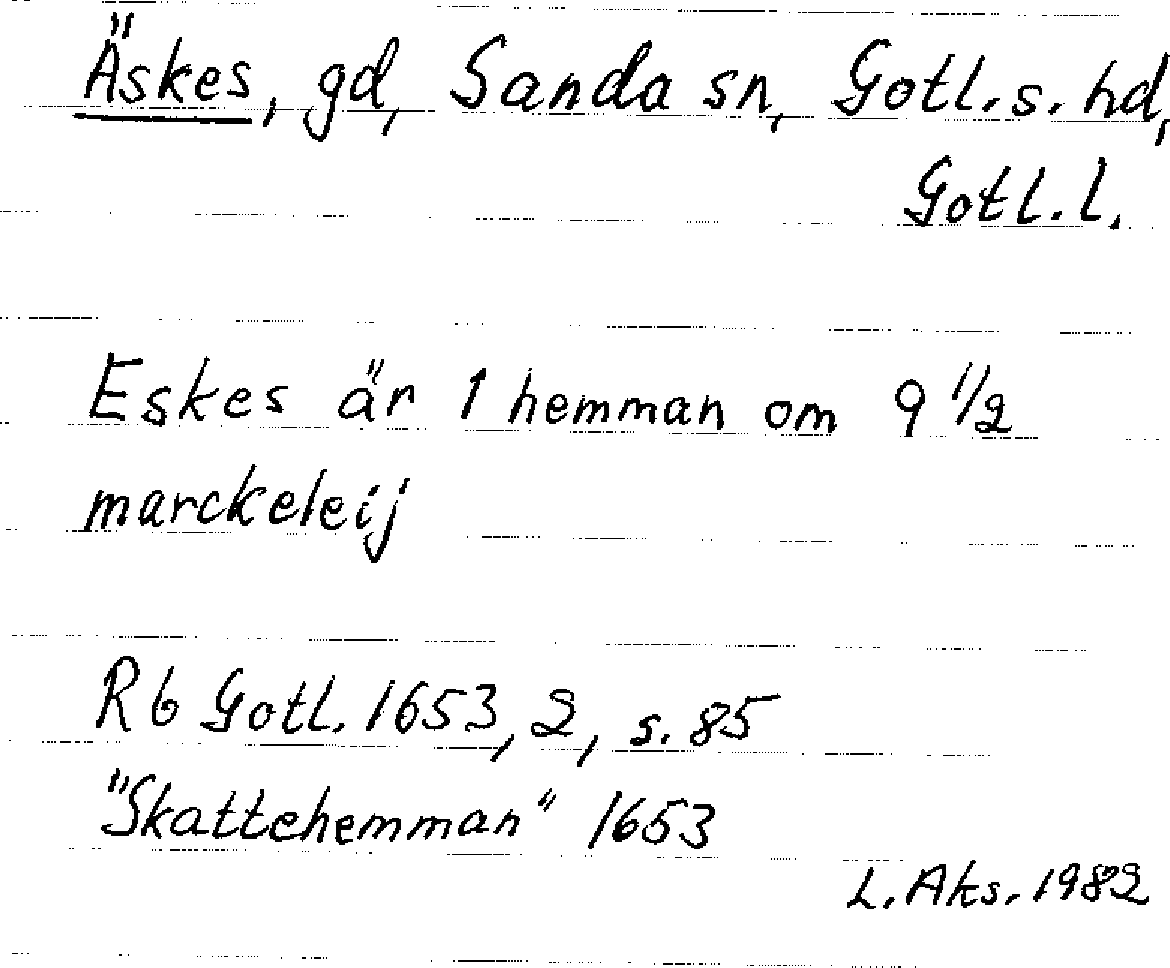 Äskes, gd, Sanda sn, Gotl. s. hd,
Gotl. l.
Eskes är 1 hemman om 9 1/2
marckeleij
Rb Gotl. 1653, 2, s. 85
"Skattehemman" 1653
L. Aks. 1982